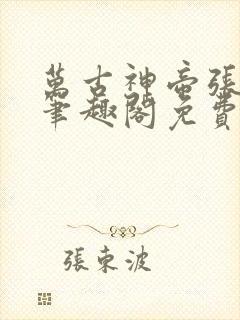 萬古神帝張
筆趣閣免費
張東波